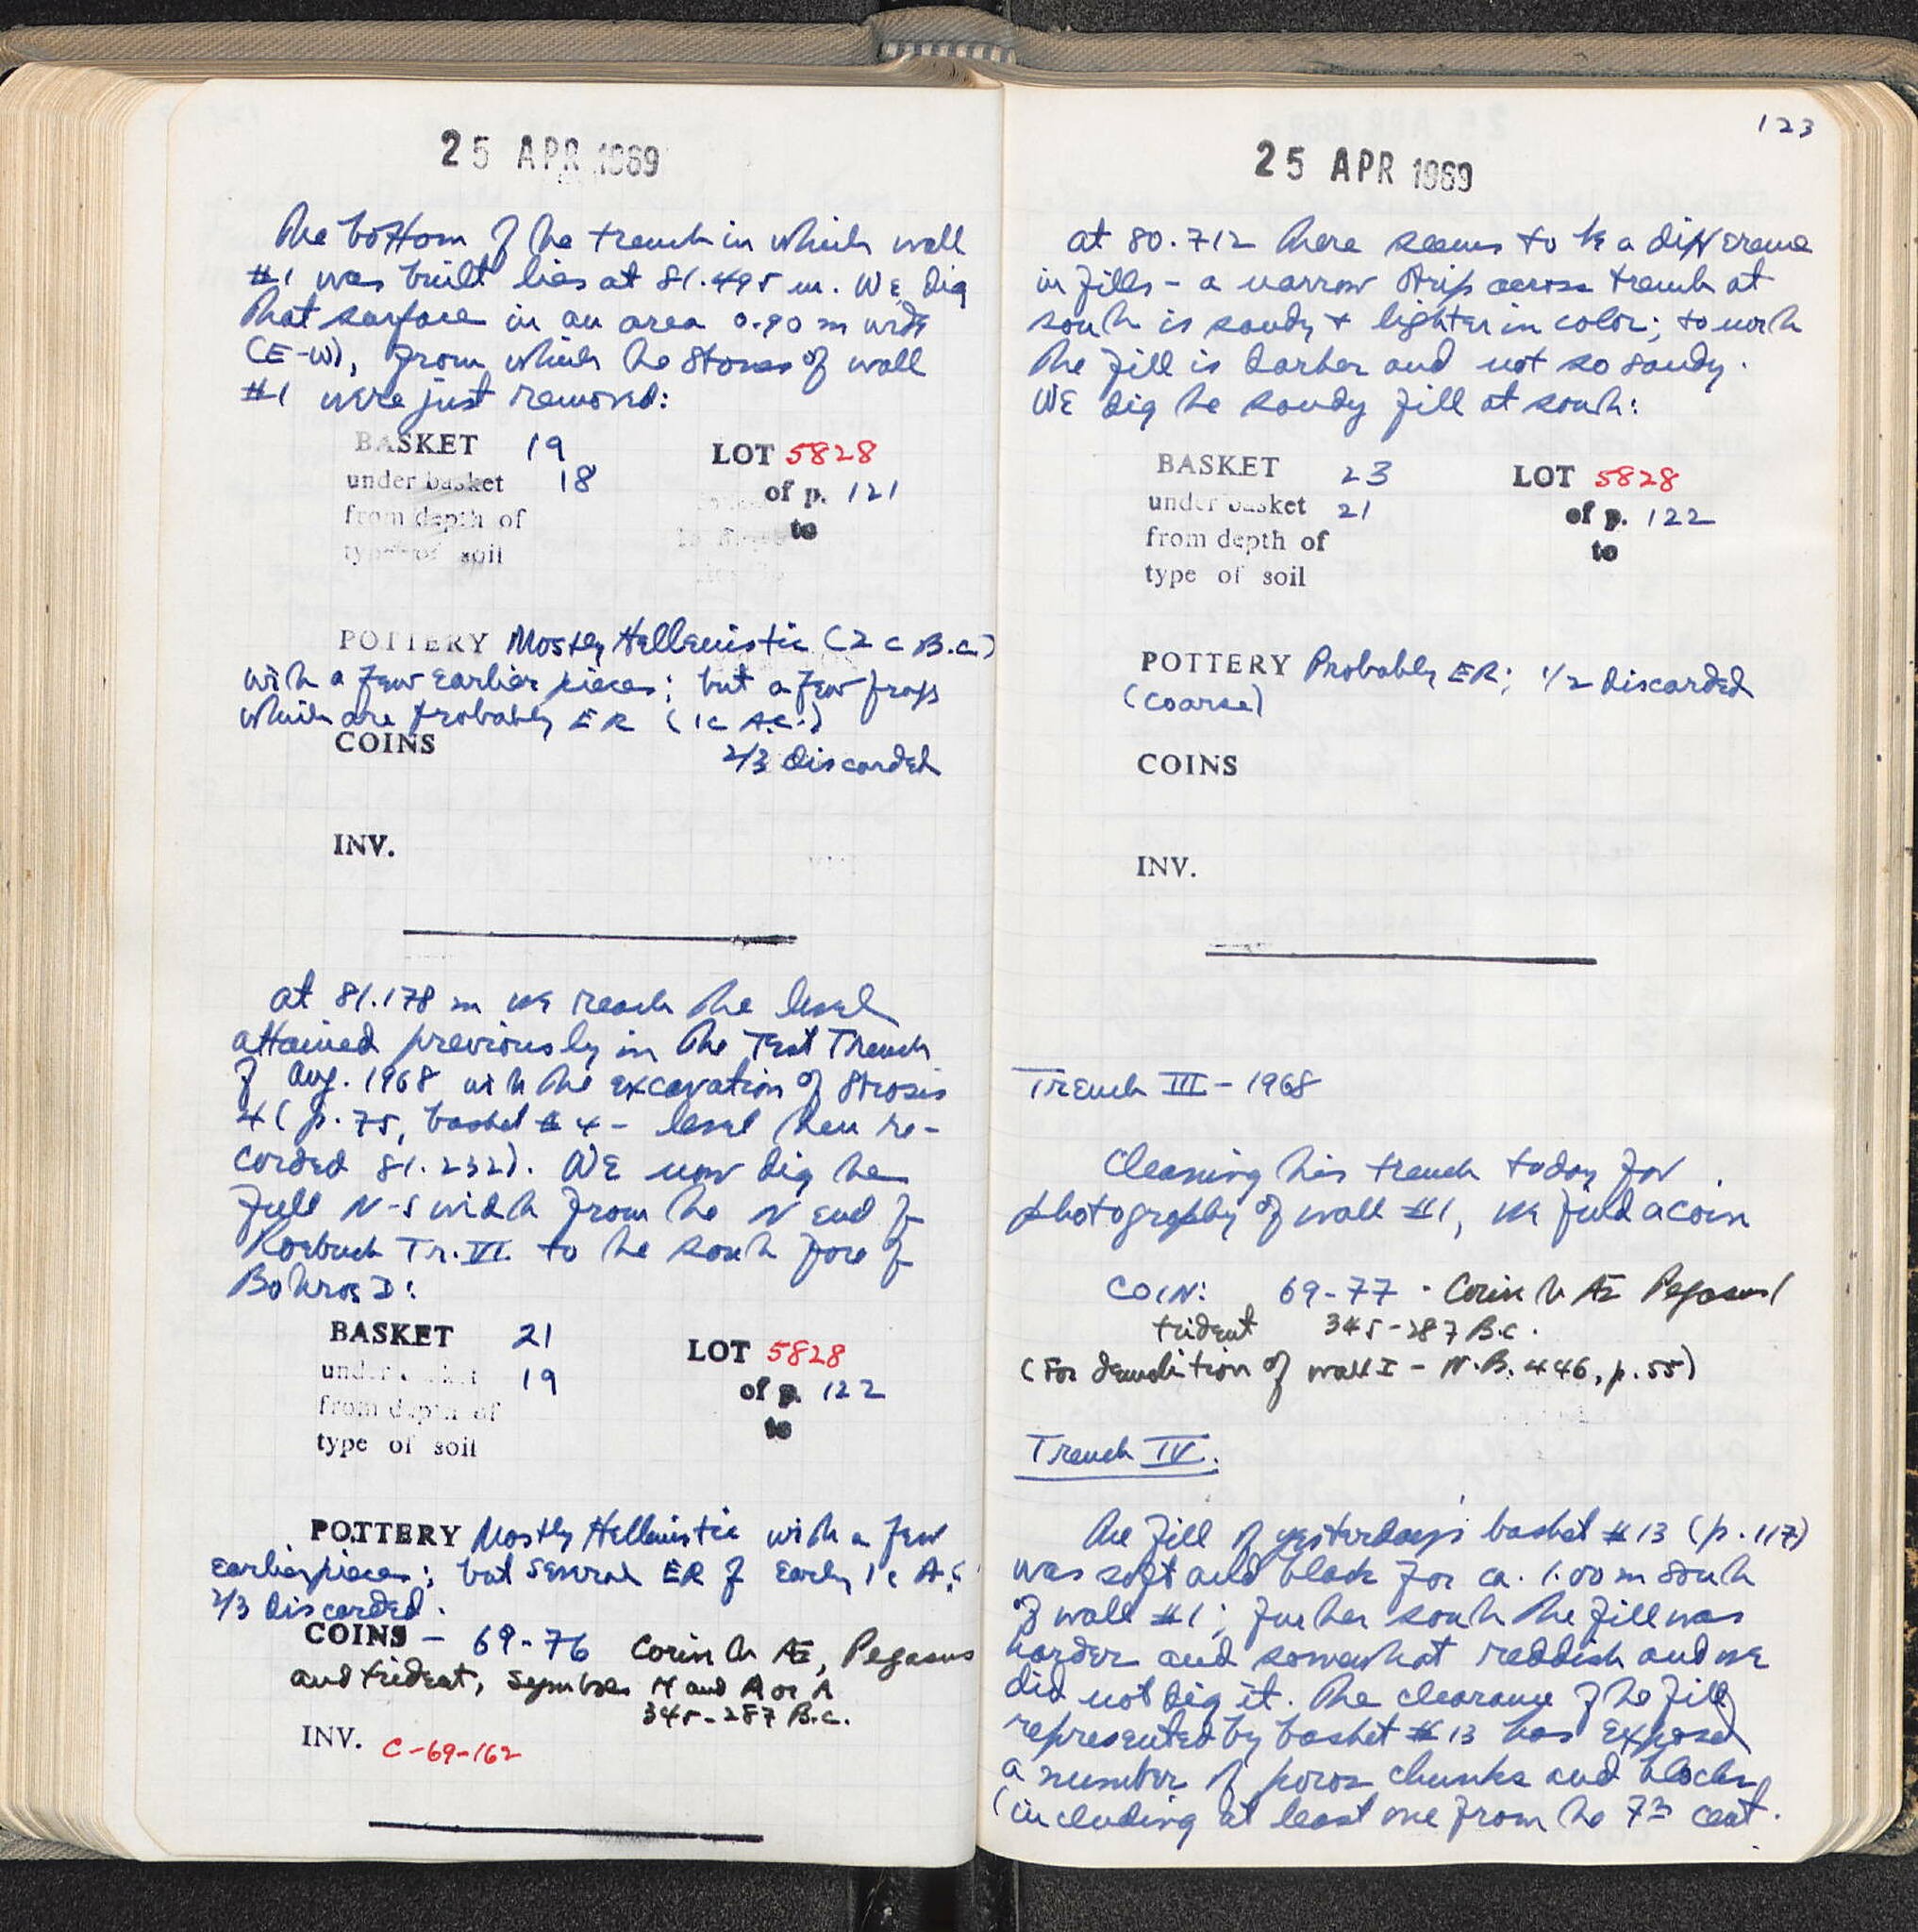 25 APR 1969
The bottom of the trench in which wall
#1 was built lies at 81.495 m. We dig
that surface in an area 0.90 m wide
(E-W), from which the stones of wall
#1 were just removed:
BASKET 19 LOT 5828
under basket 18 of p. 121
from depth of to
type of soil
POTTERY Mostly Hellenistic (2 c B.C.)
with a few earlier pieces; but a few frags
which are probably ER (1c A.C.)
COINS 2/3 discarded
INV.
at 81.178 m we reach the level
attained previously in the Test Trench
of Aug. 1968 with the excavation of Strosis
4 (p. 75, basket #4 - level then re-
corded 81.232). We now dig the
full N-S width from the N end of
Roebuck Tr. VI to the south face of
Bothros D:
BASKET 21 LOT 5828
under basket 19 of p. 122
from depth of to
type of soil
POTTERY Mostly Hellenistic with a few
earlier pieces; but several ER of early 1c A.C.
2/3 discarded.
COINS - 69-76 Corinth Æ, Pegasus
and trident, symbols N and A or Λ
345-287 B.C.
INV. C-69-162
123
25 APR 1969
at 80.712 there seems to be a difference
in fills - a narrow strip across trench at
south is sandy + lighter in color; to north
the fill is darker and not so sandy.
We dig the sandy fill at south:
BASKET 23 LOT 5828
under basket 21 of p. 122
from depth of to
type of soil
POTTERY Probably ER; 1/2 discarded
(coarse)
COINS
INV.
Trench III - 1968
Cleaning this trench today for
photography of wall #1, we find a coin
COIN: 69-77 - Corinth Æ Pegasus/
trident 345-287 B.C.
(For demolition of wall I - N.B. 446, p. 55)
Trench IV.
The fill of yesterday's basket #13 (p. 117)
was soft and black for ca. 1.00 m south
of wall #1; further south the fill was
harder and somewhat reddish and we
did not dig it. The clearance of the fill
represented by basket #13 has exposed
a number of poros chunks and blocks
(including at least one from the 7th cent.